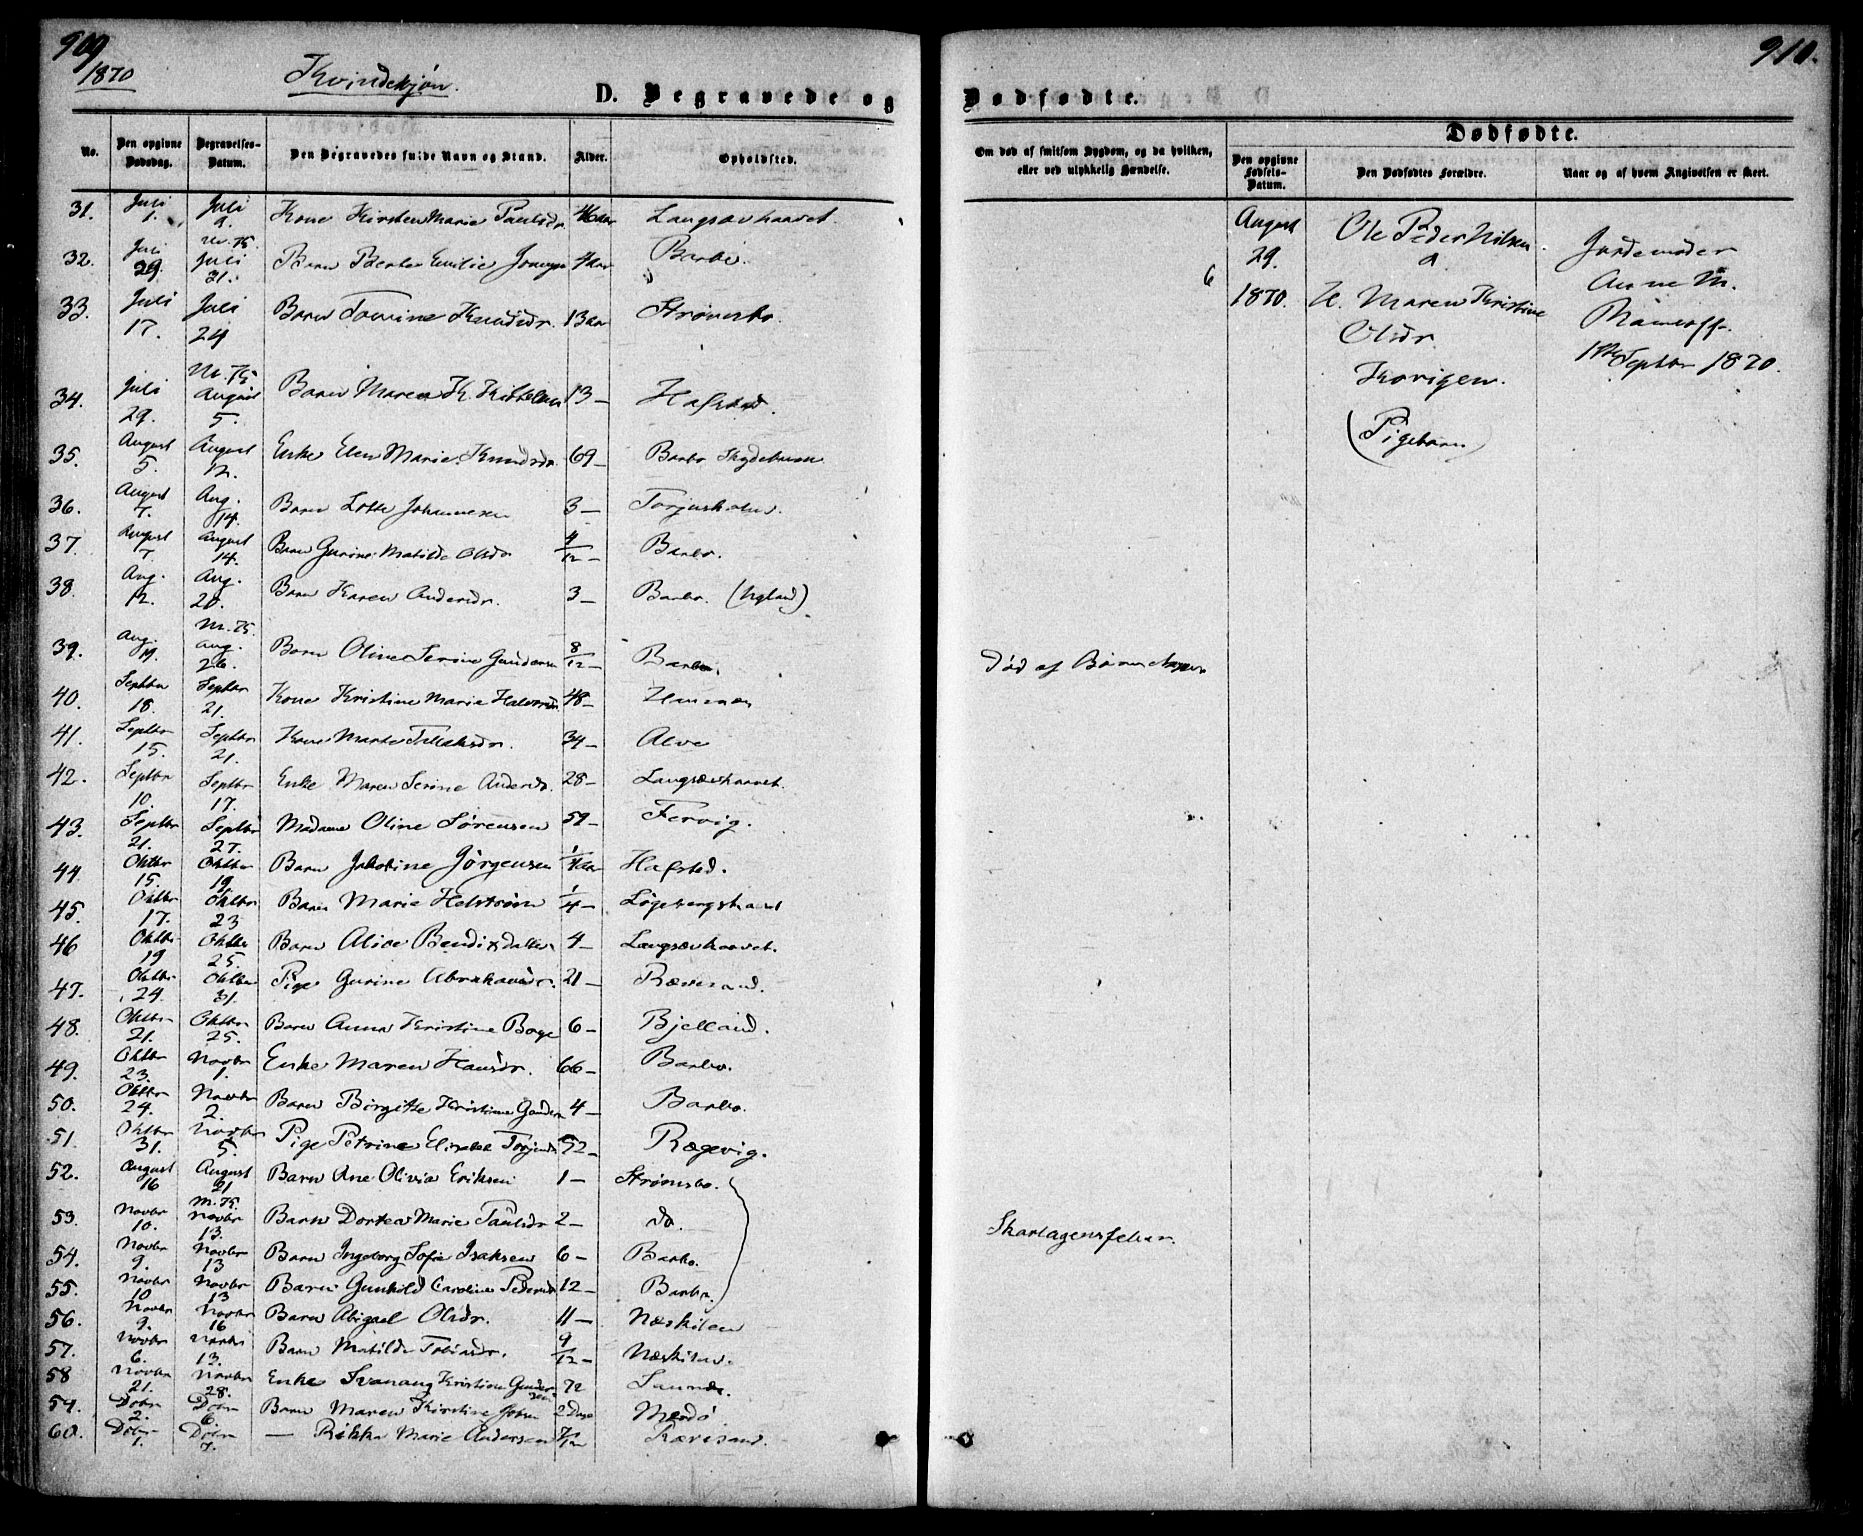 909
1870
Kvindekjøn.
D. Begravede og
No.
Den opgivne Dødsdag.
Begravelses-Datum.
Den Begravedes fulde Navn og Stand.
Alder.
Opholdsted.
31. Juli 1. Juli 9. Kone Kirsten Marie Paulsdr 46 aar Langsævhaavet
32. Juli 29. Juli 31. Barn Emilie 4 aar Barbo.
33. Juli 17. Juli 24 Barn Tomine Knudsdr. 13 aar Strømsbo.
34. Juli 29. August 5. Barn Maren K. 13 — Hafsted.
35. August 5. August 12. Enke Elen Marie Knudsdr. 69 — Barbo
36. August 7. Aug. 14. Barn Lotte Johannesen 3 — Torjusholm.
37. August 7. August 14. Barn Gurine Matilde Olsdr 4/12 — Barbo.
38. Aug. 12. Aug. 20. Barn Karen Andersdr. 3 — Barbo. (Nyland)
39. Aug. 19. Aug. 26. Barn Oline Serine Gundersen 8/12 — Barbo.
40. Septbr 18. Septbr 21. Kone Kristine Marie Halvorsdr 48 —
41. Septbr 15. Septbr 21. Kone Marte Tellefsdr. 34 — Alve
42. Septbr 10. Septbr 17. Enke Maren Serine Andersdr. 28 — Langsævhaavet.
43. Septbr 21. Septbr 27. Madame Oline Sørensen 59 — Fervig.
44 Oktbr 15. Oktbr 19 Barn Jakobine Jørgensen 1/4 aar Hafsted.
45. Oktbr 17. Oktbr 23 Barn Marie Helstrøm 1/4 —
46 Oktbr 19 Oktbr 25. Barn Alice Bendixdatter 4 — Langsævhaavet.
47. Oktbr 24. Oktbr 31. Pige Gurine Abrahamsdr. 21 — Rævesand.
48. Oktbr 21. Oktbr 25. Barn Anna Kristine Boye 6 — Bjelland.
49. Oktbr 23. Novbr 1. Enke Maren Hansdr. 66 — Barbo.
50. Oktbr 24. Novbr 2. Barn Birgitte Kristine Gundersen 4 — Barbo.
51. Oktbr 31. Novbr 5. Pige Petrine 52 — Rægevig.
52. August 16 August 21 Barn Ane Olivia Eriksen 1 — Strømsbo.
53. Novbr 10. Novbr 13. Barn Dortea Marie Paulsdr 2 — do.
54. Novbr 9. Novbr 13 Barn Ingeborg Sofie Isaksen 6 — Barbo.
55. Novbr 10 Novbr 13 Barn Gunhild Caroline Pedersdr 12 — Barbo.
56. Novbr 9. Novbr 16 Barn Abigael Olsdr. 11 — Næskilen
57. Novbr 6. Novbr 13. Barn Matilde Tobiasdr. 9/12 — Næskilen.
58 Novbr 21. Novbr 28. Enke Kristine 72
59. Dcbr 2. Dcbr 6. Barn Maren Kirstine 2 Dage Merdø
60. Dcbr 1. Dcbr 7. — Rikka Marie Andersen 7/12 Rævesand.
910.
Dødfødte.
Om død af smitsom Sygdom, og da hvilken, eller ved ulykkelig Hændelse.
Dødfødte.
Den opgivne Fødsels-Datum.
Den Dødfødtes Forældre.
Naar og af hvem Angivelsen er skeet.
6
August 29. 1870.
Ole Peder Nilsen
H. Maren Kristine
Olsdr.
(Pigebarn)
Jordemoder
Anne M.
1ste Septbr 1870.
Død af
Skarlagensfeber.